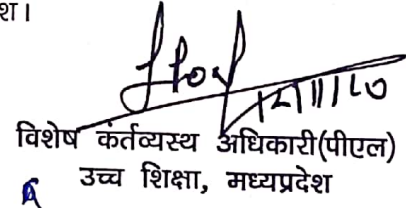 श।
विशेष कंर्तव्यस्थ अधिकारी(पीएल)
उच्च शिक्षा, मध्यप्रदेश